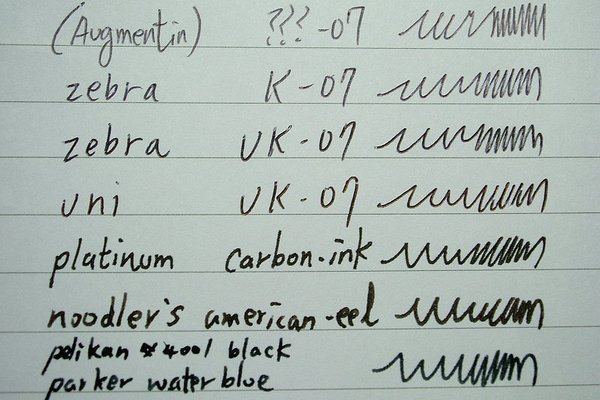 (Augmentin) ??? -07
zebra K-07
zebra UK-07
uni UK-07
platinum carbon-ink
noodler's american-eel
pelikan 4001 black
parker water blue